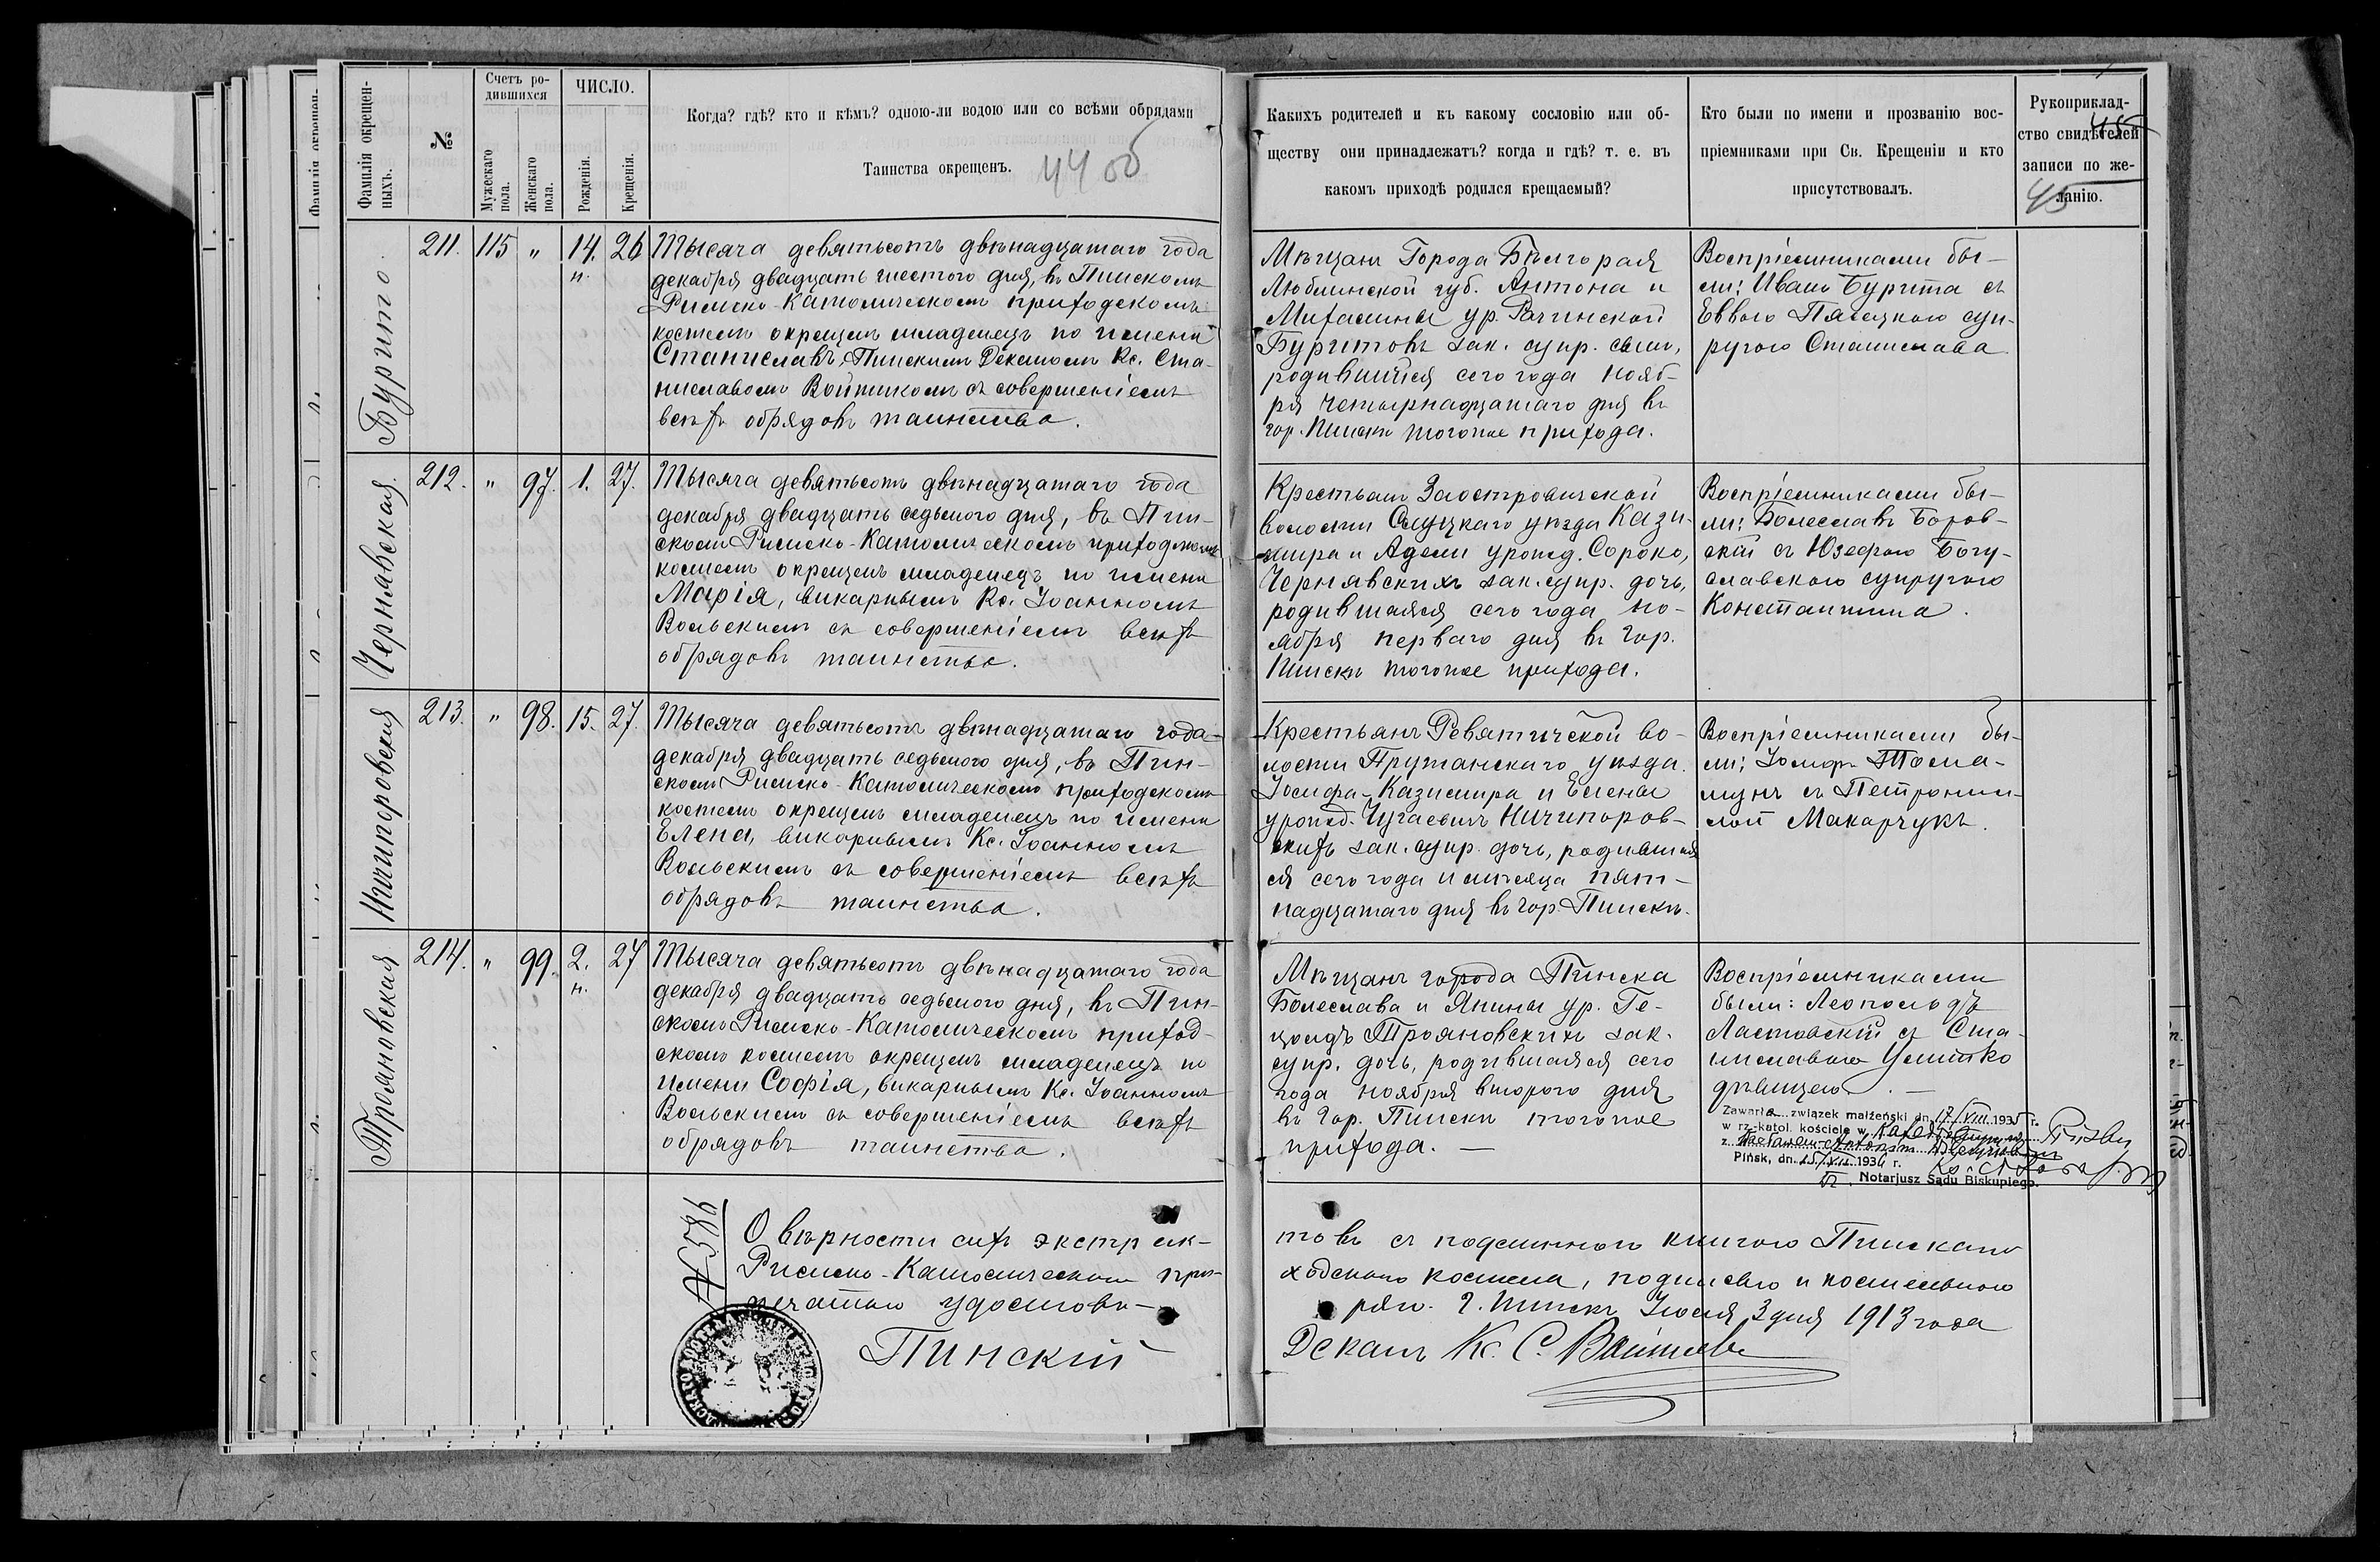 Фамилія окрещен-
ныхъ.
№
Счетъ ро-
дившихся
Мужескаго
пола.
Женскаго
пола.
ЧИСЛО.
Рожденія.
Крещенія.
Когда? гдѣ? кто и кѣмъ? одною-ли водою или со всѣми обрядами
Таинства окрещенъ.
44 об
Какихъ родителей и къ какому сословію или об-
ществу они принадлежатъ? когда и гдѣ? т. е. въ
какомъ приходѣ родился крещаемый?
Кто были по имени и прозванію вос-
пріемниками при Св. Крещеніи и кто
присутствовалъ.
Рукоприклад-
ство свидѣтелей
записи по же-
ланію.
45
Бурито.
211. 115 „ 14. 26
н.
Тысяча девятьсотъ двѣнадцатаго года
декабря двадцать шестого дня, въ Пинскомъ
Римско-Католическомъ приходскомъ
костелѣ окрещенъ младенецъ по имени
Станиславъ, Пинскимъ Деканомъ Кс. Ста-
ниславомъ Войтикомъ съ совершеніемъ
всѣхъ обрядовъ таинства.
Мѣщанъ Города Бѣлгорая
Люблинской губ. Антона и
Михалины ур. Рачинской
Буритовъ зак. супр. сынъ,
родившійся сего года нояб-
ря четырнадцатаго дня въ
гор. Пинскѣ тогоже прихода.
Воспріемниками бы-
ли: Иванъ Бурита съ
Еввою Пясецкою суп-
ругою Станислава
Чернявская.
212. „ 97. 1. 27.
Тысяча девятьсотъ двѣнадцатаго года
декабря двадцать седьмого дня, въ Пин-
скомъ Римско-Католическомъ приходскомъ
костелѣ окрещенъ младенецъ по имени
Марія, викарнымъ Кс. Іоанномъ
Вольскимъ съ совершеніемъ всѣхъ
обрядовъ таинства.
Крестьянъ Заостровичской
волости Слуцкаго уѣзда Кази-
мира и Адели урожд. Сороко,
Чернявскихъ зак. супр. дочь,
родившаяся сего года но-
ября перваго дня въ гор.
Пинскѣ тогоже прихода.
Воспріемниками бы-
ли: Болеславъ Боров-
скій съ Юзефою Богу-
славскою супругою
Константина.
Ничипоровская
213. „ 98. 15. 27.
Тысяча девятьсотъ двѣнадцатаго года
декабря двадцать седьмого дня, въ Пин-
скомъ Римско-Католическомъ приходскомъ
костелѣ окрещенъ младенецъ по имени
Елена, викарнымъ Кс. Іоанномъ
Вольскимъ съ совершеніемъ всѣхъ
обрядовъ таинства.
Крестьянъ Ревятичской во-
лости Пружанскаго уѣзда
Іосифа-Казимира и Елены
урожд. Чугаевичъ Ничипоров-
скихъ зак. супр. дочь, родившая
ся сего года и мѣсяца пят-
надцатаго дня въ гор. Пинскѣ.
Воспріемниками бы-
ли: Іосифъ
съ Петрони-
лой Макарчукъ.
Трояновская
214. „ 99. 2. 27
н.
Тысяча девятьсотъ двѣнадцатаго года
декабря двадцать седьмого дня, въ Пин-
скомъ Римско-Католическомъ приход-
скомъ костелѣ окрещенъ младенецъ по
имени Софія, викарнымъ Кс. Іоанномъ
Вольскимъ съ совершеніемъ всѣхъ
обрядовъ таинства.
Мѣщанъ города Пинска
Болеслава и Янины ур. Ге-
цольдъ Трояновскихъ зак.
супр. дочь, родившаяся сего
года ноября второго дня
въ гор. Пинскѣ тогоже
прихода. —
Воспріемниками
были: Леопольдъ
Ластовскій съ Ста-
ниславою
дѣвицею. —
Zawarła związek małżeński dn. 17/VIII 1935 r.
w rz.-katol. kościele w
z Wacławem-Antonim
Pińsk, dn. 1936 r.
Notarjusz Sądu Biskupiego.
№ 586
О вѣрности сихъ экстрак-
товъ съ подлинною книгою Пинскаго
Римско-Католическаго при-
ходскаго костела, подписью и костельною
печатью удостовѣ-
ряю. г. Пинскъ Іюля 3 дня 1913 года
Пинскій
Деканъ Кс. С. Войтикъ